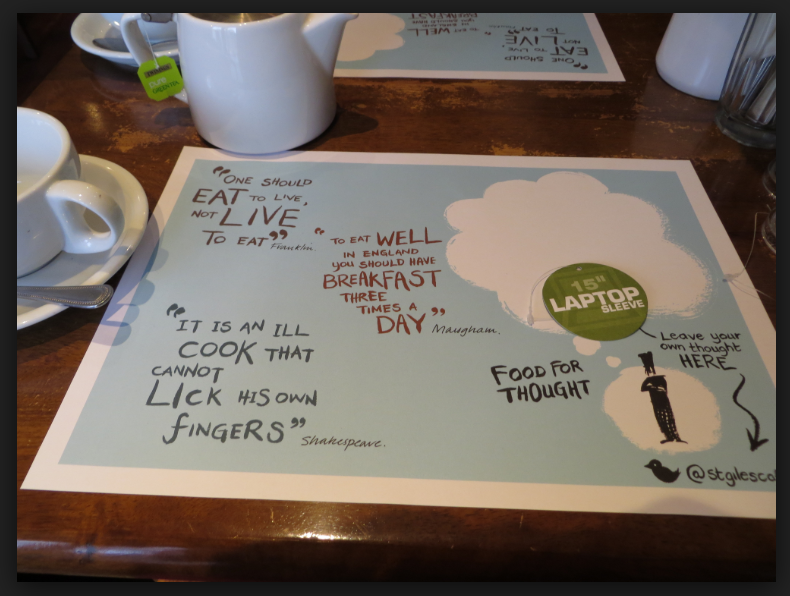 “ONE SHOULD
EAT TO LIVE,
NOT LIVE
TO EAT”
Franklin.
“TO EAT WELL
IN ENGLAND
YOU SHOULD HAVE
BREAKFAST
THREE
TIMES A
DAY”
Maugham.
“IT IS AN ILL
COOK THAT
CANNOT
LICK HIS OWN
FINGERS”
Shakespeare.
15"
LAPTOP
SLEEVE
Leave your
own thought
HERE
FOOD FOR
THOUGHT
@stgilesco
“ONE SHOULD
EAT TO LIVE,
NOT LIVE
TO EAT”
TO EAT WELL
BREAKFAST